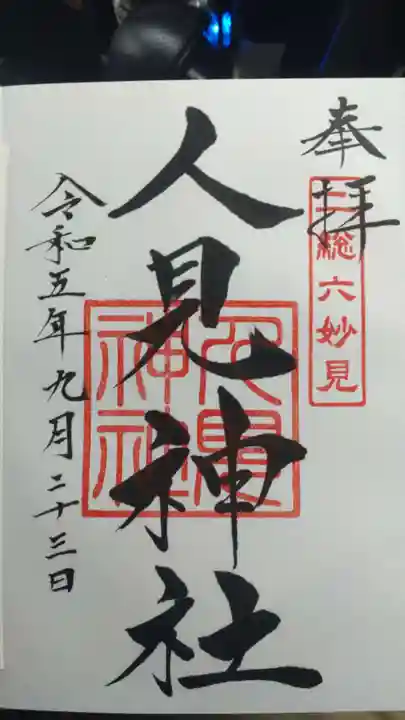 奉拝
二総六妙見
人見神社
人見神社
令和五年九月二十三日